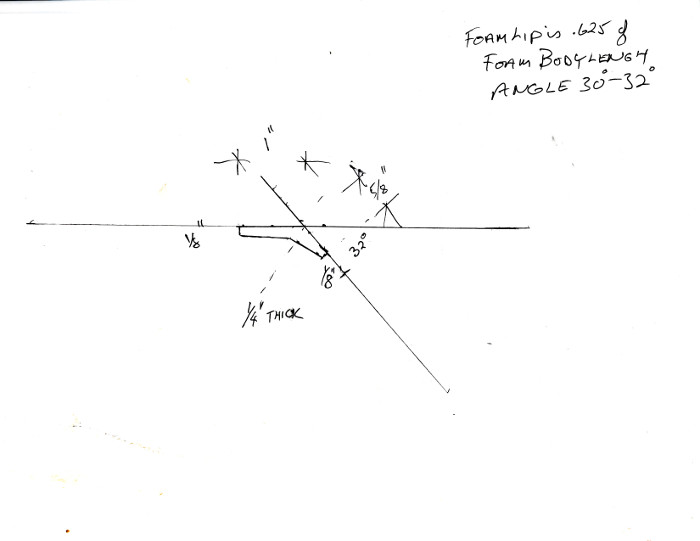 FOAM LIP is .625 of
FOAM BODY LENGH
ANGLE 30°-32°
1"
5/8"
1/8"
32°
1/8"
1/4" THICK